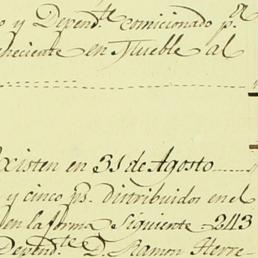 o y Depend.te comicionado p.r
eneciente en Mueble al
Existen en 31 de Agosto
y cinco ps. distribuidos en el
en la forma siguiente 243
Depend.te D. Ramon Herre-